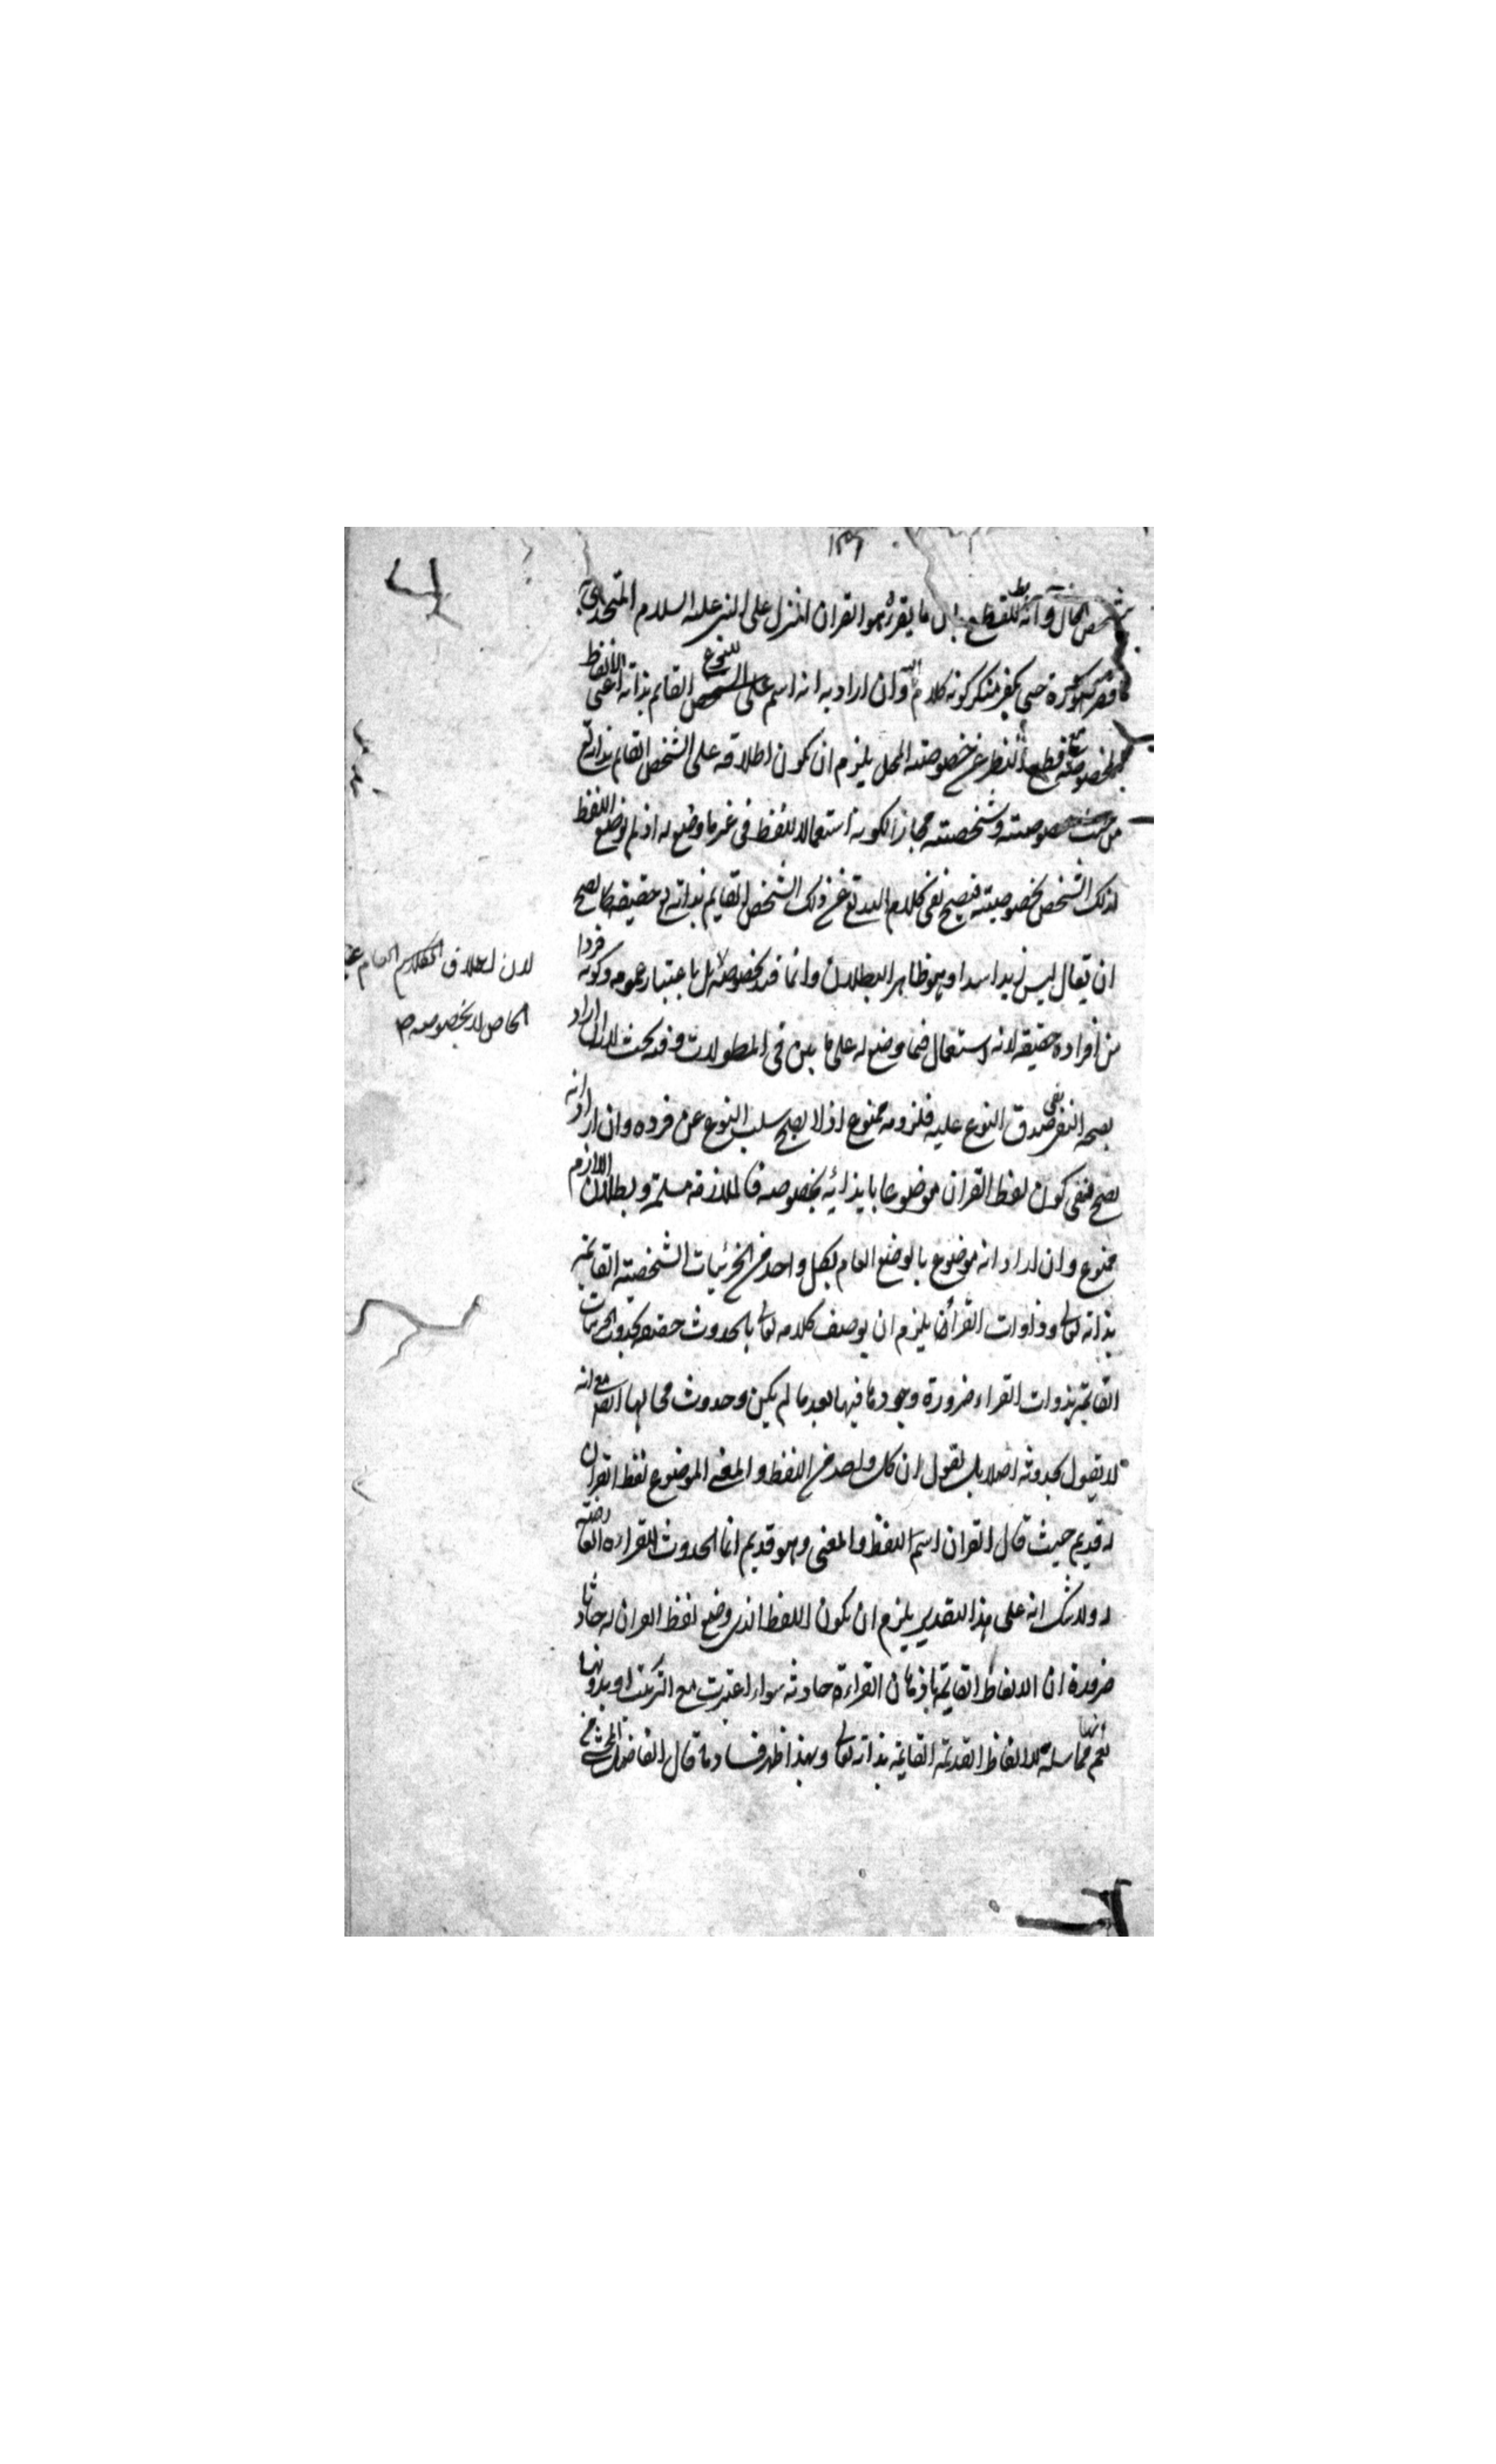 بشخص المحال وانه بط للقطع بان ما يقرؤه هو القران المنزل على النبي عليه السلام المتحدى به
باقصر سورة حتى يكفر منكر كونه كلام الله وان اراد به انه اسم على النوع القايم بذاته اعني الالفاظ
المخصوصة مع قطع النظر عن خصوصية المحل يلزم ان يكون اطلاقه على الشخص القايم بذاته تع
من حيث خصوصيته وشخصيته مجازا لكونه استعمالا للفظ في غير ما وضع له اذ لم يوضع اللفظ
لذلك الشخص بخصوصيته فيصح نفي كلام الله تع عن ذلك الشخص القايم بذاته تع حقيقة كما يصح
ان يقال ليس زيد اسدا وهو ظاهر البطلان وانما قيد بخصوصه لا بل باعتبار عمومه وكونه فردا
من افراده حقيقة لانه استعمال فيما وضع له على ما بين في المطولات وفيه بحث لانه ان اراد
بصحة النفي نفي صدق النوع عليه فلزومه ممنوع اذ لا يصح سلب النوع عن فرده وان اراد انه
يصح نفي كون لفظ القران موضوعا بازائه بخصوصه فالملازمة مسلمة وبطلان اللازم
ممنوع وان اراد انه موضوع بالوضع العام لكل واحد من الجزئيات الشخصية القايمة
بذاته تعالى وذوات القراء يلزم ان يوصف كلامه تعالى بالحدوث حقيقة لحدوث الجزئيات
القايمة بذوات القراء ضرورة وجودها فيها بعد ما لم يكن وحدوث محالها مع انه
لا يقول بحدوثه اصلا بل يقول ان كل واحد من اللفظ والمعنى الموضوع لفظ القران
له قديم حيث قال القران اسم اللفظ والمعنى وهو قديم انما الحدوث للقراءة العارضة
له ولا شك انه على هذا التقدير يلزم ان يكون اللفظ الذي وضع لفظ القران له حادثا
ضرورة ان الالفاظ القايمة باذهان القراءة حادثة سواء اعتبرت مع الترتيب او بدونها
نعم انها مماثلة للالفاظ القديمة القايمة بذاته تعالى وبهذا ظهر فساد ما قال الفاضل المحشي من
لان اطلاق الكلام العام على
الخاص لا بخصوصه